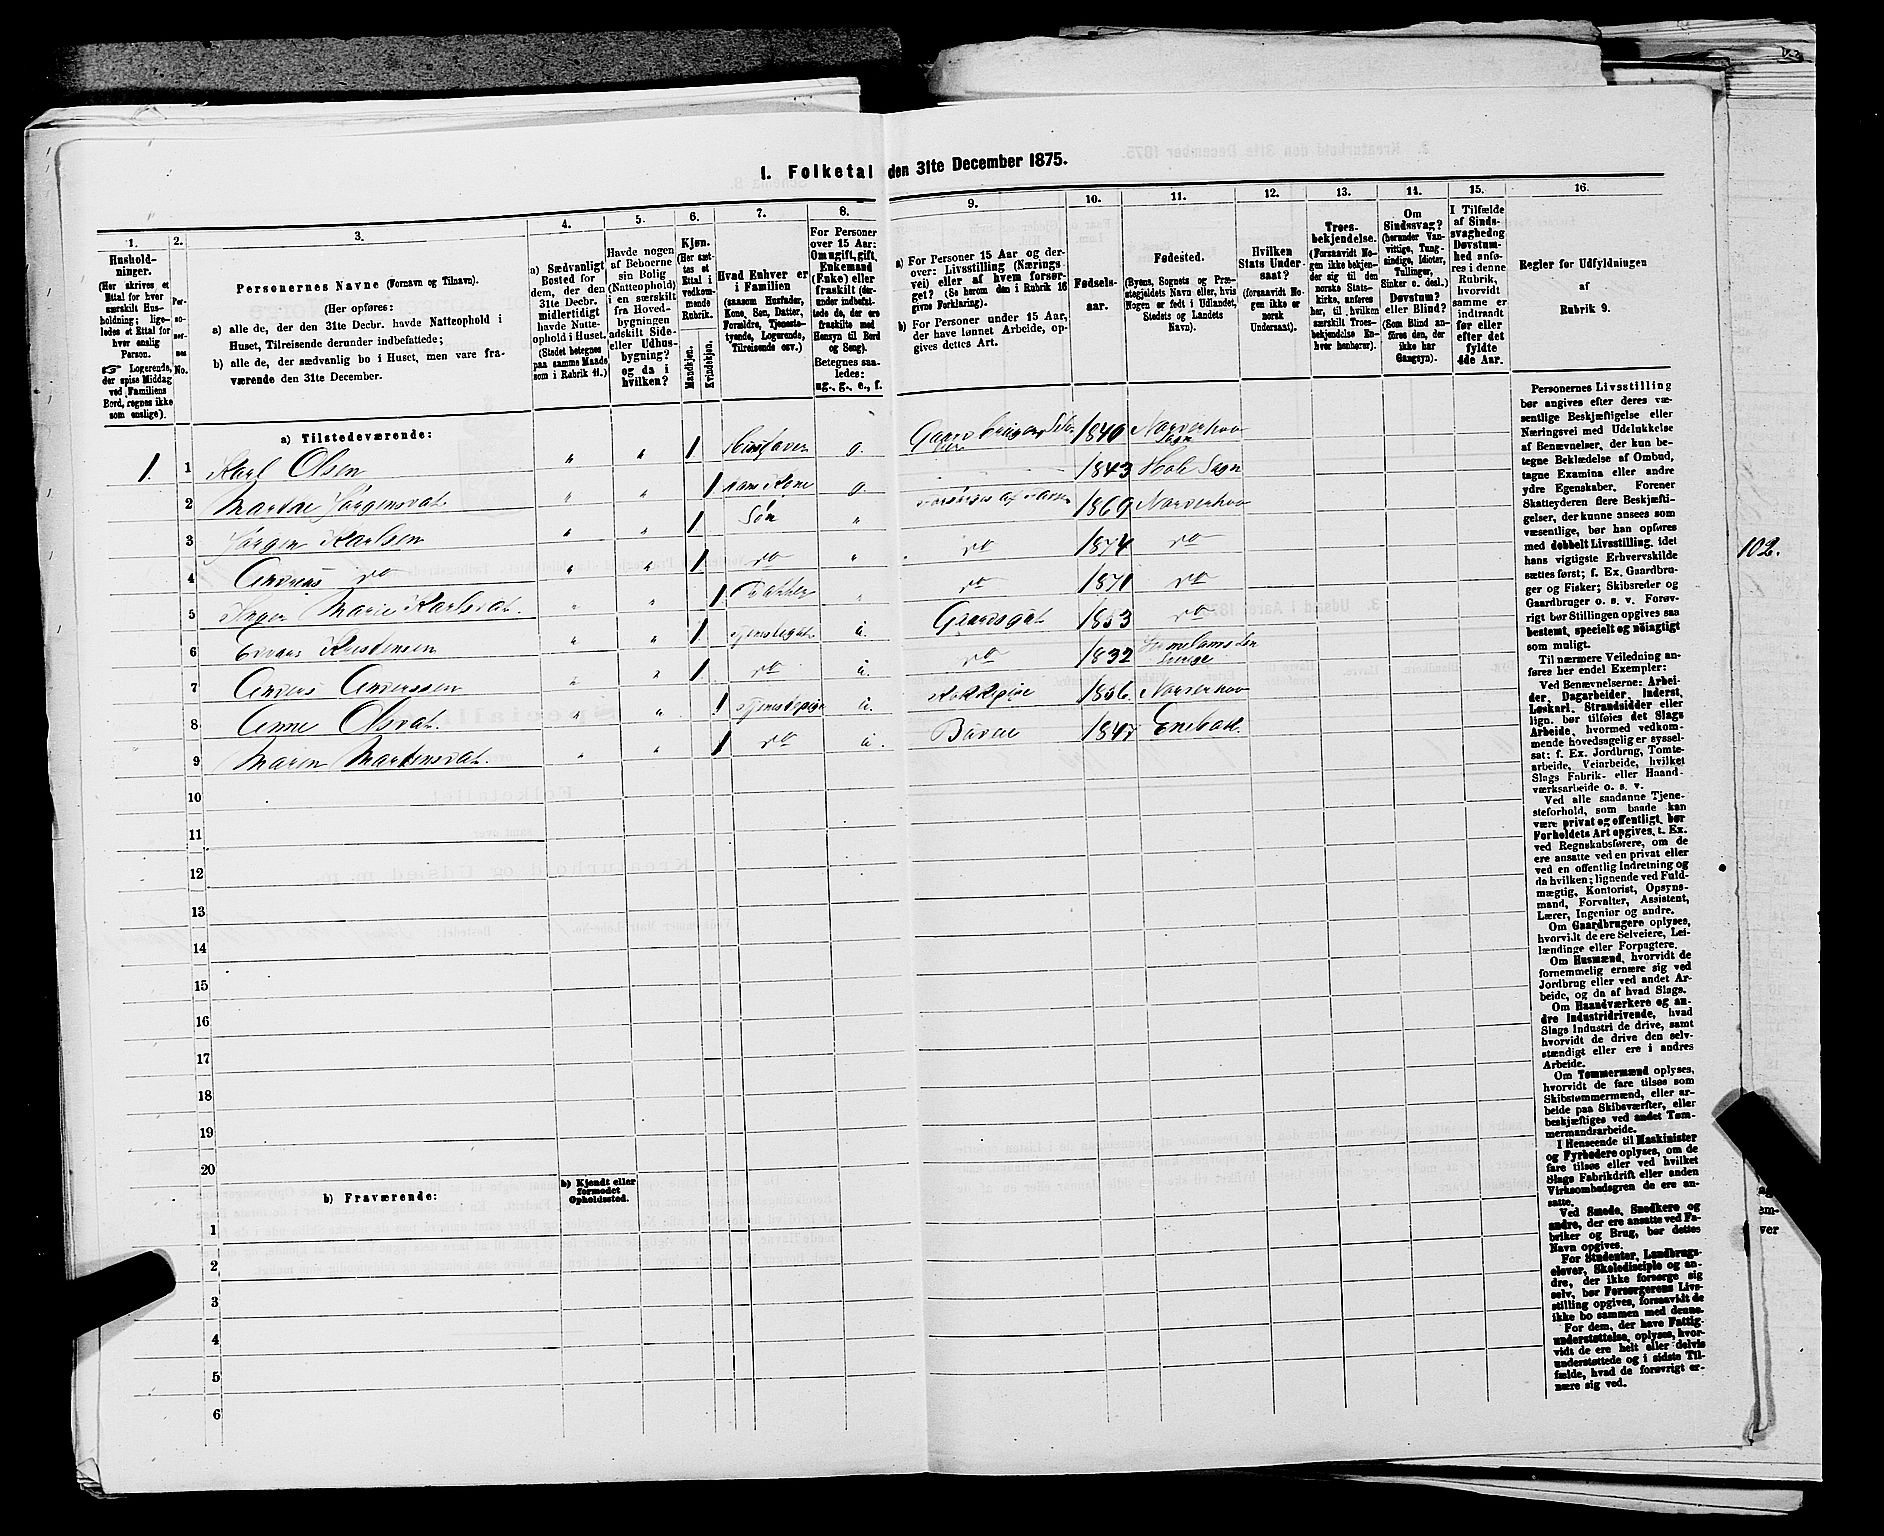 I. Folketal den 31te December 1875.
1. 2. 3. 4. 5. 6. 7. 8. 9. 10. 11. 12. 13. 14. 15. 16.
Hushold-
ninger.
(Her skrives et
Ettal for hver
særskilt Hus-
holdning; lige-
ledes et Ettal for
hver enslig
Person.
☞ Logerende,
der spise Middag
ved Familiens
Bord, regnes ikke
som enslige).
Per-
so-
ner-
nes
No.
Personernes Navne (Fornavn og Tilnavn).
(Her opføres:
a) alle de, der den 31te Decbr. havde Natteophold i
Huset, Tilreisende derunder indbefattede;
b) alle de, der sædvanlig bo i Huset, men vare fra-
værende den 31te December.
a) Sædvanligt
Bosted for
dem, der den
31te Decbr.
midlertidigt
havde Natte-
ophold i Huset.
(Stedet betegnes
paa samme Maade
som i Rubrik 11.)
Havde nogen
af Beboerne
sin Bolig
(Natteophold)
i en særskilt
fra Hoved-
bygningen
adskilt Side-
eller Udhus-
bygning?
og da i
hvilken?
Kjøn.
(Her sæt-
tes et
Ettal i
vedkom-
mende
Rubrik.
Mandkjøn.
Kvindekjøn.
Hvad Enhver er
i Familien
(saasom Husfader,
Kone, Søn, Datter,
Forældre, Tjeneste-
tyende, Logerende,
Tilreisende osv.)
For Personer
over 15 Aar:
Om ugift, gift,
Enkemand
(Enke) eller
fraskilt (der-
under indbefat-
tede de, der ere
fraskilte med
Hensyn til Bord
og Seng).
Betegnes saa-
ledes:
ug., g., e., f.
a) For Personer 15 Aar og der-
over: Livsstilling (Nærings-
vei) eller af hvem forsør-
get? (Se herom den i Rubrik 16
givne Forklaring).
b) For Personer under 15 Aar,
der have lønnet Arbeide, op-
gives dettes Art.
Fødsels-
aar.
Fødested.
(Byens, Sognets og Præ-
stegjeldets Navn eller, hvis
Nogen er født i Udlandet,
Stedets og Landets
Navn).
Hvilken
Stats Under-
saat?
(forsaavidt No-
gen ikke er
norsk
Undersaat).
Troes-
bekjendelse.
(Forsaavidt No-
gen ikke bekjen-
der sig til den
norske Stats-
kirke, anføres
her, til hvilken
særskilt Troes-
bekjendelse En-
hver henhører).
Om
Sindssvag?
(herunder Van-
vittige, Tung-
sindige, Idioter,
Tullinger,
Sinker o. desl.)
Døvstum?
eller Blind?
(Som Blind an-
føres den, der
ikke har
Gangsyn).
I Tilfælde
af Sinds-
svaghed og
Døvstum-
hed anfø-
res i denne
Rubrik,
hvorvidt
samme er
indtraadt
før eller
efter det
fyldte
4de Aar.
Regler for Udfyldningen
af
Rubrik 9.
a) Tilstedeværende:
1. 1 Karl Olsen " " 1 Husfader g. Gaardbruger Selveier 1840 Norderhov Sogn
2 Marthe Jørgensdat. " " 1 hans Kone g. 1843 Hole Sogn
3 Jørgen Karlsen " " 1 Søn " Forsørges af Faderen 1869 Norderhov
4 Andreas do " " 1 do " do 1874 do
5 Inger Marie Karlsdat. " " 1 Datter " do 1871 do
6 Kristensen " " 1 Tjenestegut u. Gaardsgut 1853 do
7 Anders Anderssen " " 1 do u. do 1832 Sverige
8 Anne Olsdat. " " 1 Tjenestepige u. 1856 Norderhov
9 Maren Martinsdat. " " 1 do u. Budeie 1847 Enebak.
10
11
12
13
14
15
16
17
18
19
20
b) Fraværende:
b) Kjendt eller
formodet
Opholdssted.
1
2
3
4
5
6
Personernes Livsstilling
bør angives efter deres væ-
sentlige Beskjæftigelse eller
Næringsvei med Udelukkelse
af Benævnelser, der kun be-
tegne Beklædelse af Ombud,
tagne Examina eller andre
ydre Egenskaber. Forener
Skatteyderen flere Beskjæfti-
gelser, der kunne ansees som
væsentlige, bør han opføres
med dobbelt Livsstilling, idet
hans vigtigste Erhvervskilde
sættes først; f. Ex. Gaardbru-
ger og Fisker; Skibsreder og
Gaardbruger o. s. v. Forøv-
rigt bør Stillingen opgives saa
bestemt, specielt og nöiagtigt
som muligt.
Til nærmere Veiledning an-
føres her endel Exempler:
Ved Benævnelserne: Arbei-
der, Dagarbeider, Inderst,
Løskarl, Strandsidder eller
lign. bør tilføies det Slags
Arbeide, hvormed vedkom-
mende hovedsagelig er syssel-
sat; f. Ex. Jordbrug, Tomte-
arbeide, Veiarbeide, hvilket
Slags Fabrik- eller Haand-
værksarbeide o. s. v.
Ved alle saadanne Tjene-
steforhold, som baade kan
være privat og offentligt, bør
Forholdets Art opgives, t. Ex.
ved Regnskabsførere, om de
ere ansatte ved en privat eller
ved en offentlig Indretning og
da hvilken; lignende ved Fuld-
mægtig, Kontorist, Opsyns-
mand, Forvalter, Assistent,
Lærer, Ingeniør og andre.
Om Gaardbrugere oplyses,
hvorvidt de ere Selveiere, Lei-
lændinge eller Forpagtere.
Om Husmænd, hvorvidt de
fornemmelig ernære sig ved
Jordbrug eller ved andet Ar-
beide, og da af hvad Slags.
Om Haandværkere og an-
dre Industridrivende, hvad
Slags Industri de drive, samt
hvorvidt de drive den selv-
stændigt eller ere i andres
Arbeide.
Om Tømmermænd oplyses,
hvorvidt de fare tilsøs som
Skibstømmermænd, eller ar-
beide paa Skibsværfter, eller
beskjæftiges ved andet Tøm-
mermandsarbeide.
I Henseende til Maskinister
og Fyrbødere oplyses, om de
fare tilsøs eller ved hvilket
Slags Fabrikdrift eller anden
Virksomhedsgren de ere an-
satte.
Ved Smede, Snedkere og
andre, der ere ansatte ved Fa-
briker og Brug, bør dettes
Navn opgives.
For Studenter, Landbrugs-
elever, Skoledisciple og an-
dre, der ikke forsørge sig
selv, bør Forsørgerens Livs-
stilling opgives, forsaavidt de
ikke bo sammen med denne.
For dem, der have Fattig-
understøttelse, oplyses, hvor-
vidt de ere helt eller delvis
understøttede og i sidste Til-
fælde, hvad de forøvrigt er-
nære sig ved.
102.